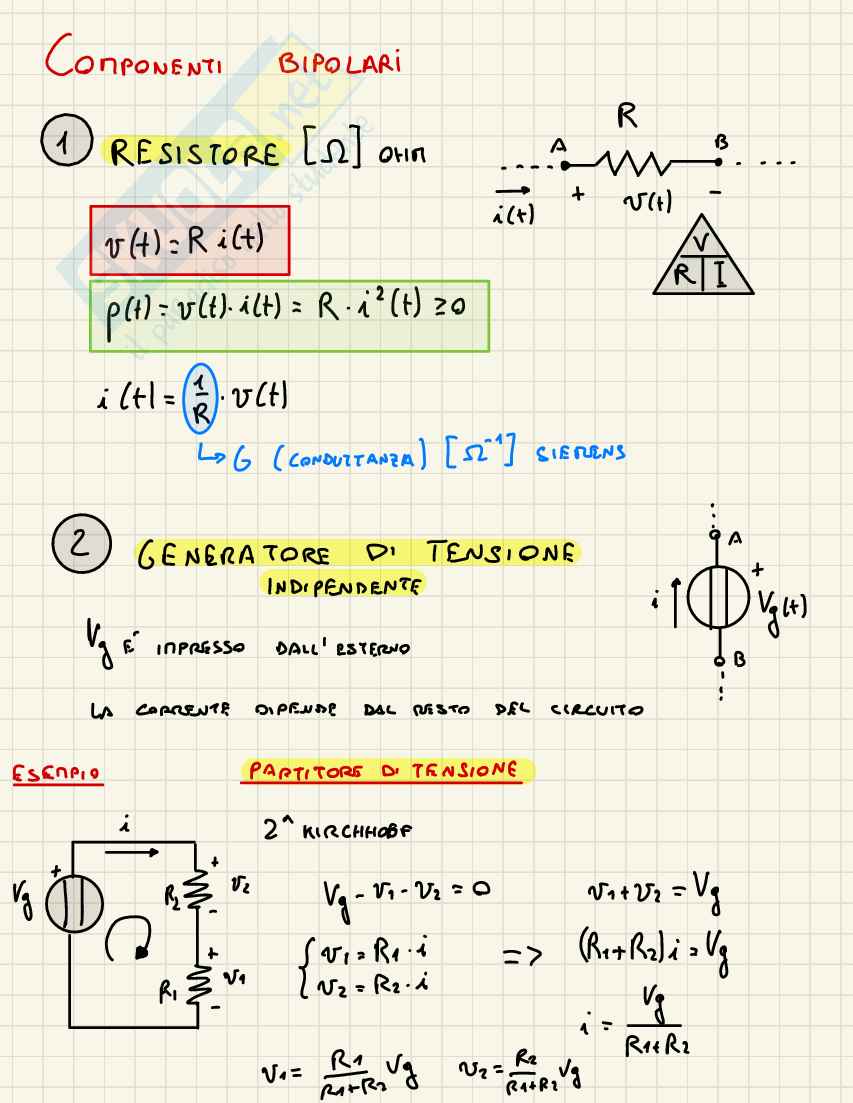 COMPONENTI BIPOLARI
1 RESISTORE [Ω] OHM
R
A B
i(t) + v(t) -
V
R I
v(t) = R i(t)
p(t) = v(t)·i(t) = R·i²(t) ≥0
i(t) = 1/R · v(t)
↳ G (CONDUTTANZA) [Ω⁻¹] SIEMENS
2 GENERATORE DI TENSIONE
INDIPENDENTE
A
+
i Vg(t)
B
Vg E' IMPRESSO DALL'ESTERNO
LA CORRENTE DIPENDE DAL RESTO DEL CIRCUITO
ESEMPIO PARTITORE DI TENSIONE
2^ KIRCHHOFF
i
+ Vg
R2 + v2 -
R1 + v1 -
Vg - v1 - v2 = 0 v1 + v2 = Vg
{ v1 = R1·i
v2 = R2·i
=> (R1+R2)i = Vg
i = Vg/(R1+R2)
v1 = R1/(R1+R2) Vg v2 = R2/(R1+R2) Vg
SKUOLA.net
il paradiso dello studente